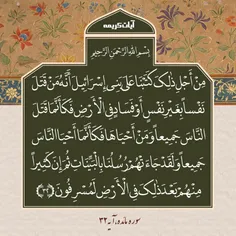 آیات کریمه
بِسْمِ اللَّهِ الرَّحْمَنِ الرَّحِيمِ
مِنْ أَجْلِ ذَلِكَ كَتَبْنَا عَلَى بَنِي إِسْرَائِيلَ أَنَّهُ مَنْ قَتَلَ
نَفْساً بِغَيْرِ نَفْسٍ أَوْ فَسَادٍ فِي الْأَرْضِ فَكَأَنَّمَا قَتَلَ
النَّاسَ جَمِيعاً وَمَنْ أَحْيَاهَا فَكَأَنَّمَا أَحْيَا النَّاسَ
جَمِيعاً وَلَقَدْ جَاءَتْهُمْ رُسُلُنَا بِالْبَيِّنَاتِ ثُمَّ إِنَّ كَثِيراً
مِنْهُمْ بَعْدَ ذَلِكَ فِي الْأَرْضِ لَمُسْرِفُونَ (٣٢)
سوره مائده، آیه ۳۲